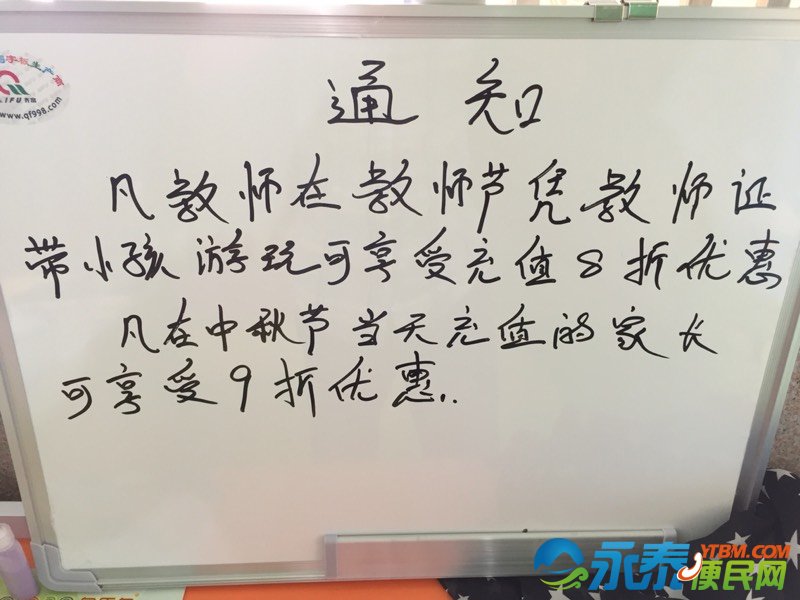 通知
凡教师在教师节凭教师证
带小孩游玩可享受充值8折优惠
凡在中秋节当天充值的家长
可享受9折优惠..
易字板生产商
LIFU 齐富
www.qf998.com
永泰便民网
YTBM.COM